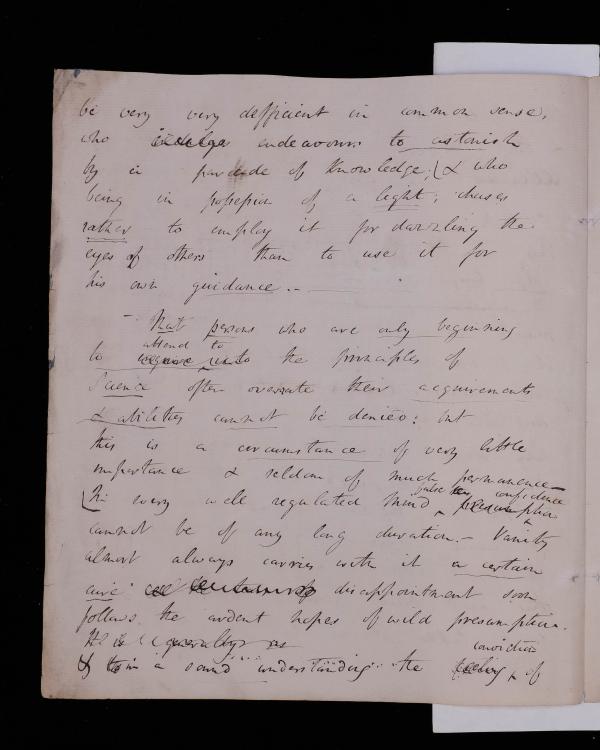 be very very defficient in common sense,
who endeavours to astonish
by a parade of knowledge; & who
being in possession of a light; chuses
rather to employ it for dazzling the
eyes of others than to use it for
his own guidance. -
- That persons who are only beginning
attend to
to the principles of
Science often overrate their acquirements
& abilities cannot be denied: but
this is a circumstance of very little
importance & seldom of much permanence -
false confidence
In every well regulated mind presumption
cannot be of any long duration. - Vanity
almost always carries with it a certain
cure disappointment soon
follows the ardent hopes of wild presumption.
It is generally as
conviction
in a sound understanding the feeling of